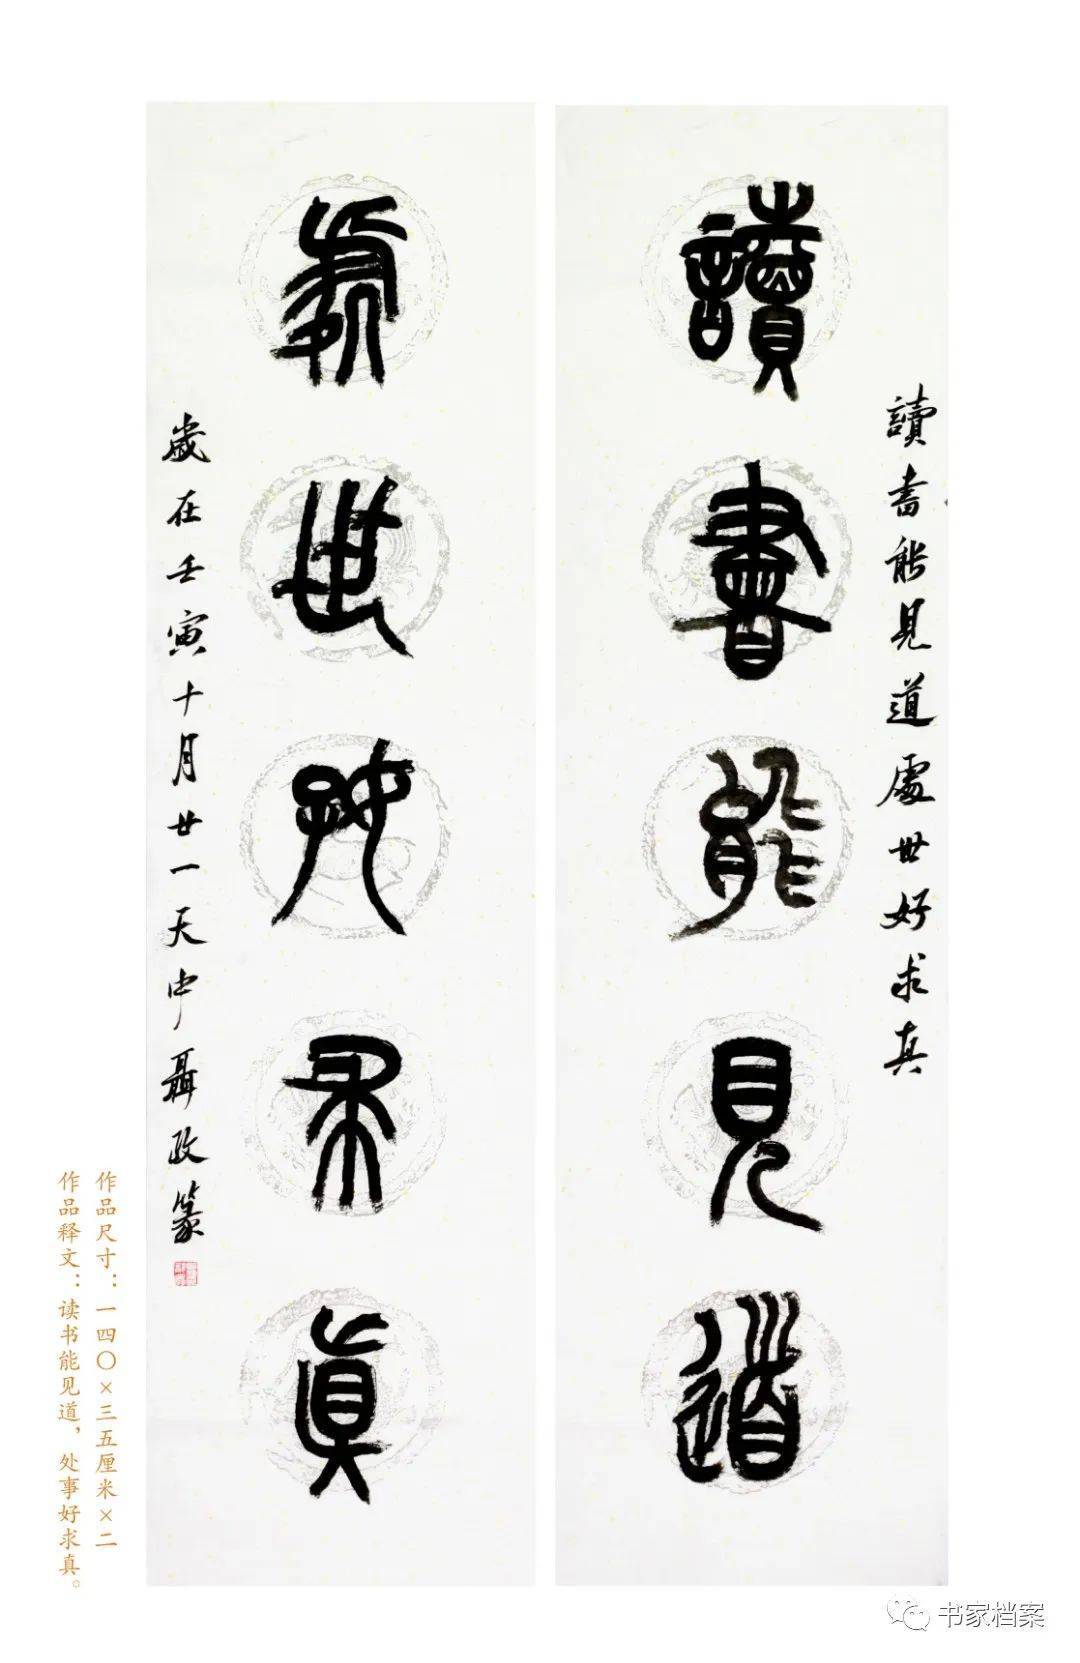 讀書能見道
讀書能見道處世好求真
處世好求真
歲在壬寅十月廿一天中聶政篆
作品尺寸：一四〇×三五厘米×二
作品释文：读书能见道，处事好求真。
书家档案